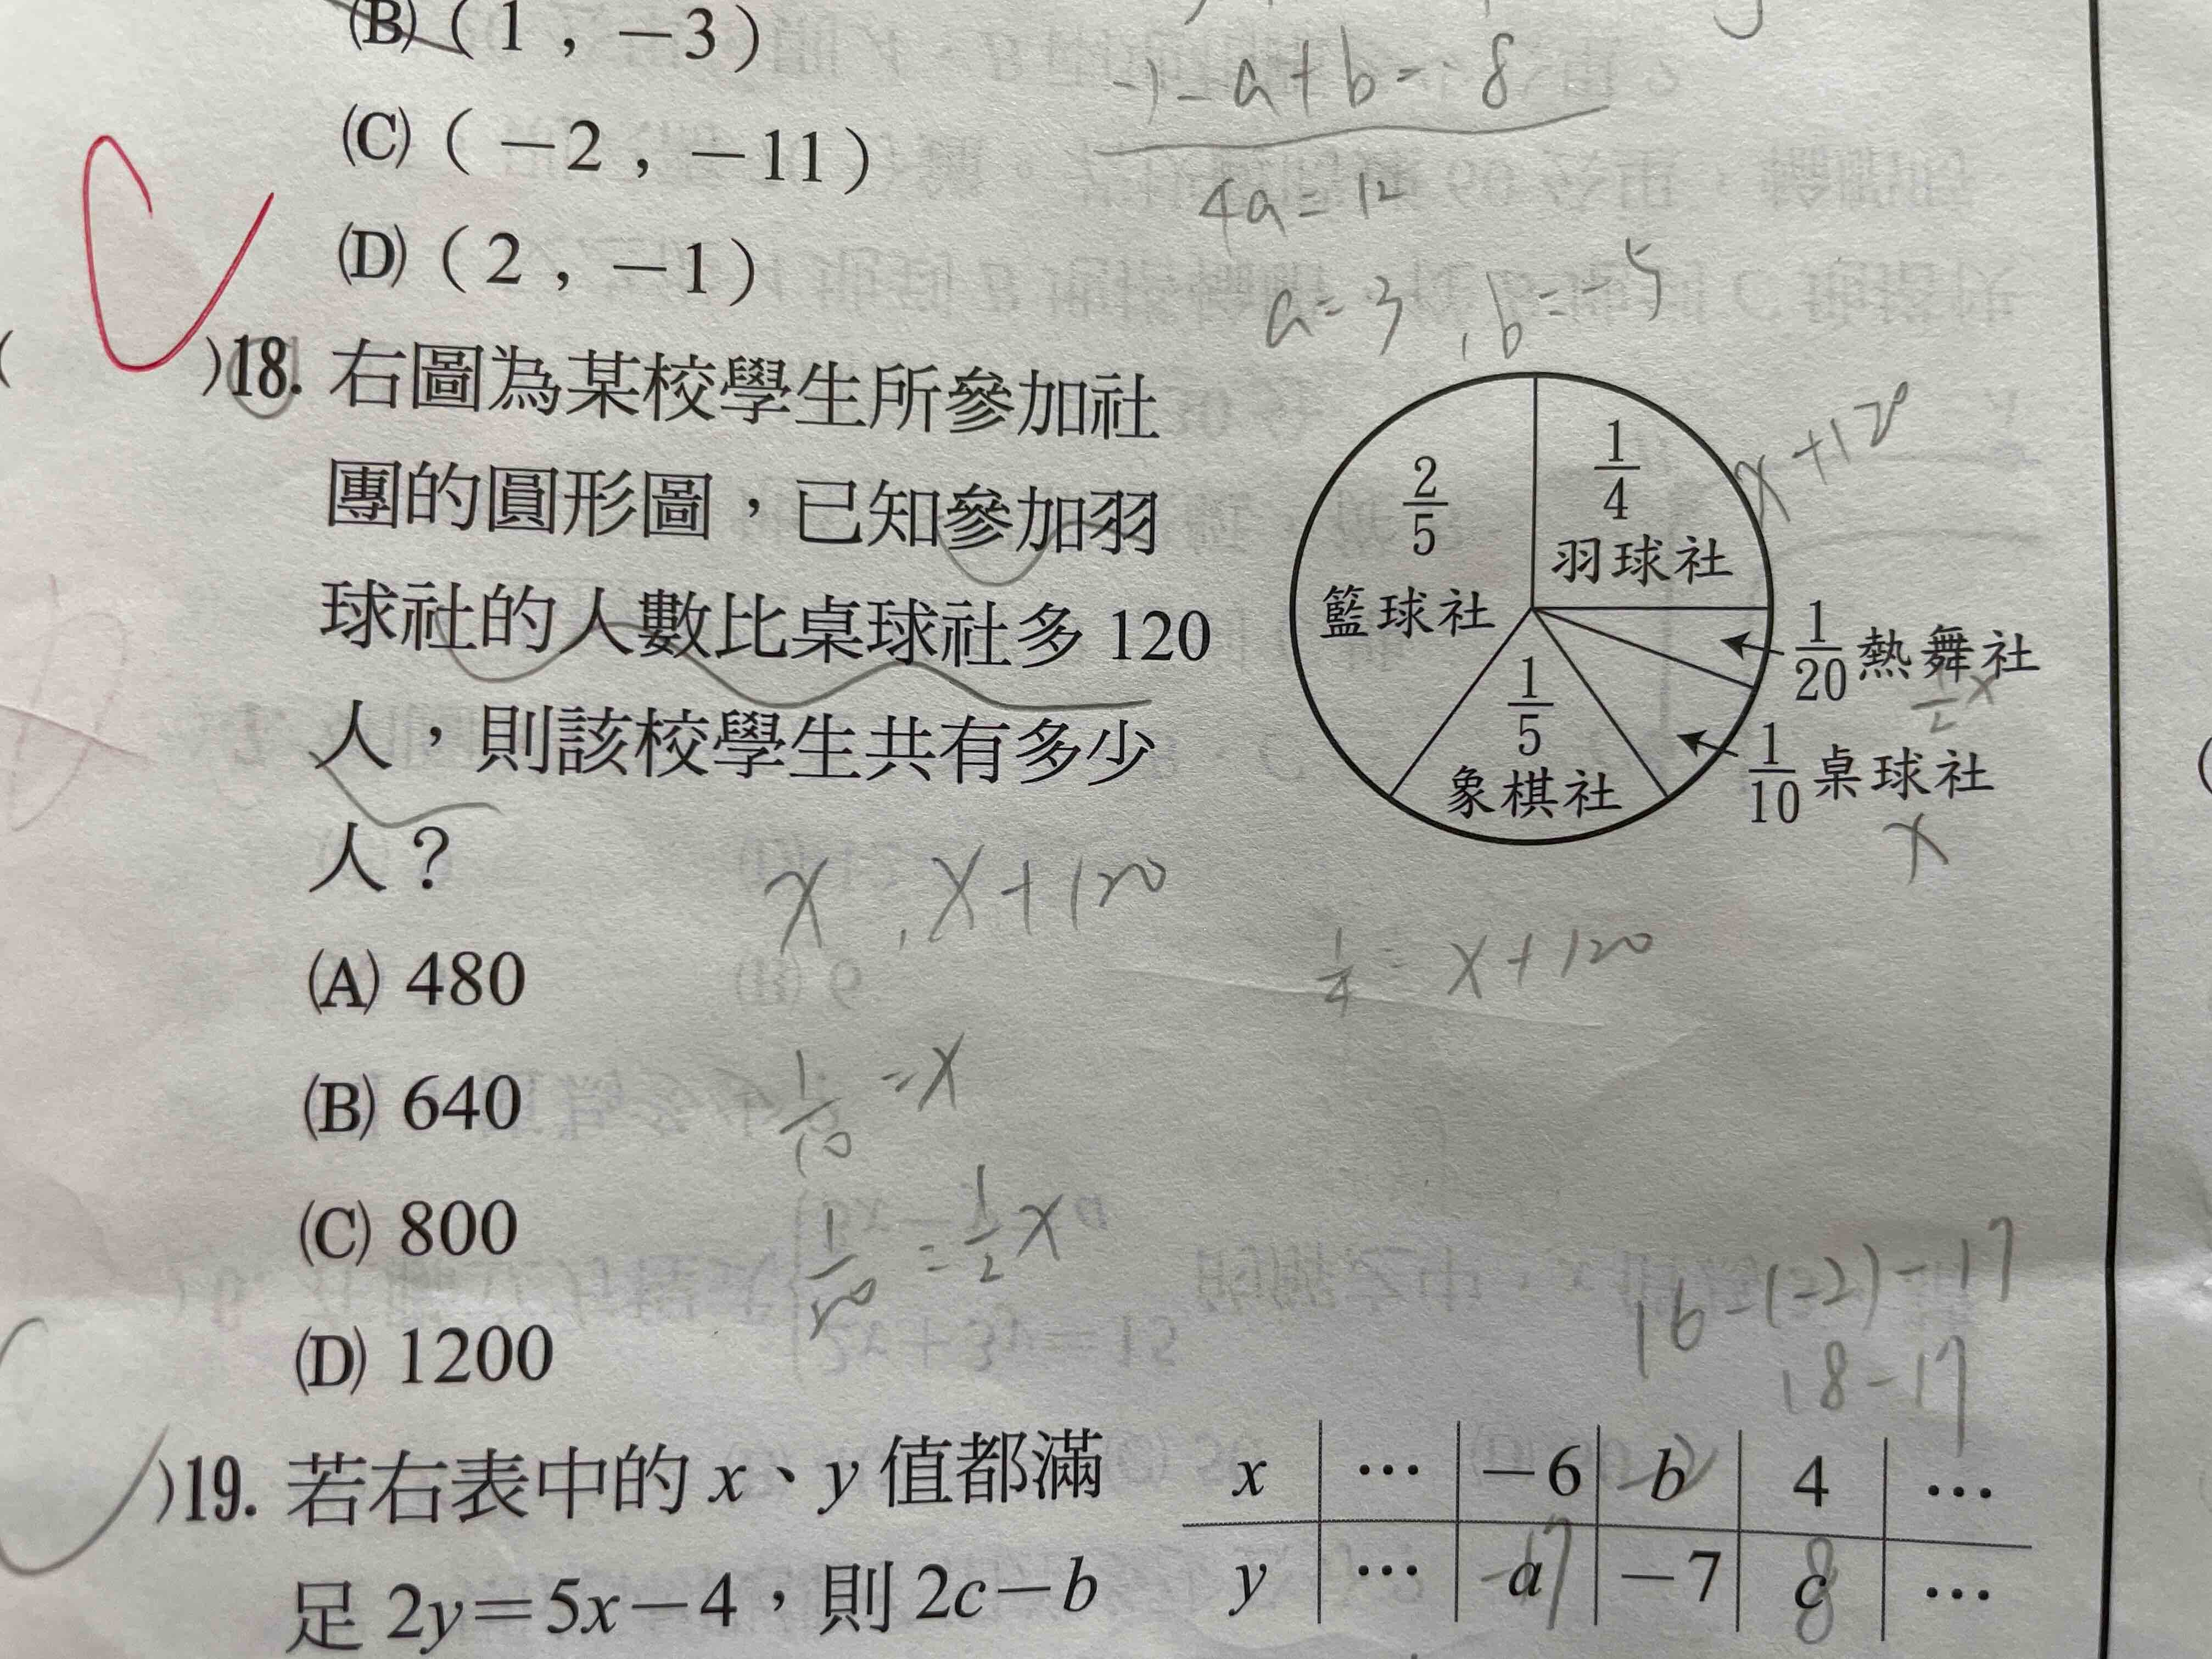 (B)(1，−3)
(C)(−2，−11)
(D)(2，−1)
−)−a+b=−8
4a=12
a=3，b=−5
(　)18. 右圖為某校學生所參加社
團的圓形圖，已知參加羽
球社的人數比桌球社多 120
人，則該校學生共有多少
人？
(A) 480
(B) 640
(C) 800
(D) 1200
2/5
籃球社
1/4
羽球社
x+120
1/20 熱舞社
1/2 x
1/10 桌球社
x
1/5
象棋社
x , x+120
1/4 = x+120
1/10 = x
1/20 = 1/2 x
16−(−2)−17
18−17
)19. 若右表中的 x、y 值都滿
足 2y=5x−4，則 2c−b
x … −6 b 4 …
y … a −7 c …
−17
8